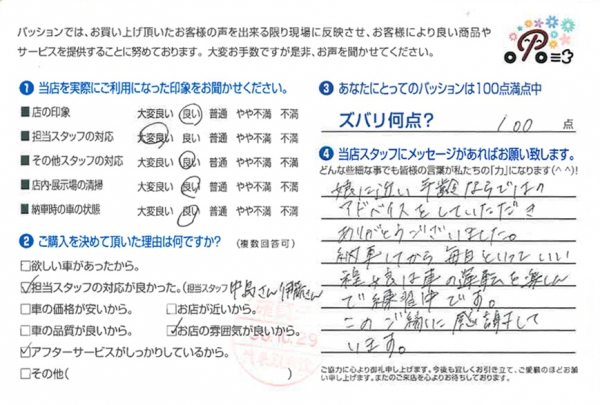 パッションでは、お買い上げ頂いたお客様の声を出来る限り現場に反映させ、お客様により良い商品や
サービスを提供することに努めております。大変お手数ですが是非、お声を聞かせてください。
❶ 当店を実際にご利用になった印象をお聞かせください。
■店の印象 大変良い 良い 普通 やや不満 不満
■担当スタッフの対応 大変良い 良い 普通 やや不満 不満
■その他スタッフの対応 大変良い 良い 普通 やや不満 不満
■店内・展示場の清掃 大変良い 良い 普通 やや不満 不満
■納車時の車の状態 大変良い 良い 普通 やや不満 不満
❷ ご購入を決めて頂いた理由は何ですか?(複数回答可)
□欲しい車があったから。
☑担当スタッフの対応が良かった。(担当スタッフ 中島さん 伊藤さん
□車の価格が安いから。 □お店が近いから。
□車の品質が良いから。 ☑お店の雰囲気が良いから。
☑アフターサービスがしっかりしているから。
□その他( )
❸ あなたにとってのパッションは100点満点中
ズバリ何点? 100 点
❹ 当店スタッフにメッセージがあればお願い致します。
どんな些細な事でも皆様の言葉が私たちの「力」になります(^^)!
娘に近い
ならではの
アドバイスをしていただき
ありがとうございました。
納車してから毎日といっていい
程 は車の運転を楽しん
で練習中です。
このご縁に感謝して
います。
ご協力に心より御礼申し上げます。今後も宜しくお引き立て、ご愛顧のほどお願
い申し上げます。またのご来店を心よりお待ちしております。